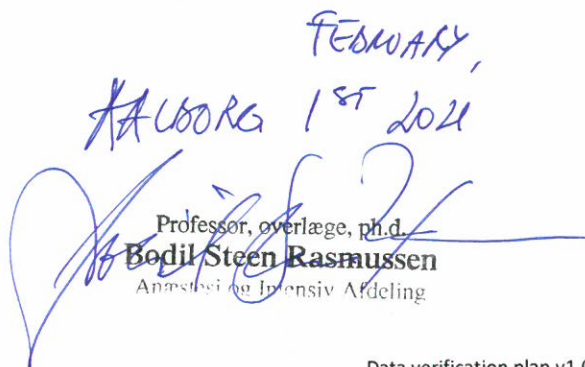 FEBRUARY,
AALBORG 1ST 2021
Professor, overlæge, ph.d.
Bodil Steen Rasmussen
Anæstesi og Intensiv Afdeling
Data verification plan v1.